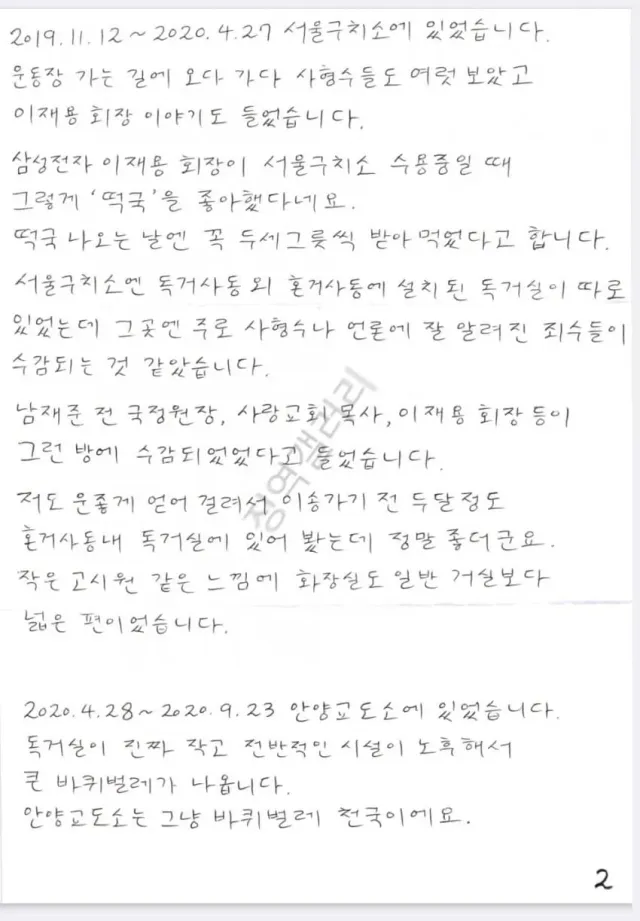 2019.11.12~2020.4.27 서울구치소에 있었습니다.
운동장 가는 길에 오다 가다 사형수들도 여럿 보았고
이재용 회장 이야기도 들었습니다.
삼성전자 이재용 회장이 서울구치소 수용중일 때
그렇게 '떡국'을 좋아했다네요.
떡국 나오는 날엔 꼭 두세그릇씩 받아먹었다고 합니다.
서울구치소엔 독거사동 외 혼거사동에 설치된 독거실이 따로
있었는데 그곳엔 주로 사형수나 언론에 잘 알려진 죄수들이
수감되는 것 같았습니다.
남재준 전 국정원장, 사랑교회 목사, 이재용 회장 등이
그런 방에 수감되었었다고 들었습니다.
저도 운좋게 얻어 걸려서 이송가기 전 두달정도
혼거사동내 독거실에 있어 봤는데 정말 좋더군요.
작은 고시원 같은 느낌에 화장실도 일반 거실보다
넓은 편이었습니다.
2020.4.28~2020.9.23 안양교도소에 있었습니다.
독거실이 진짜 작고 전반적인 시설이 노후해서
큰 바퀴벌레가 나옵니다.
안양교도소는 그냥 바퀴벌레 천국이에요.
2
징역갤러리